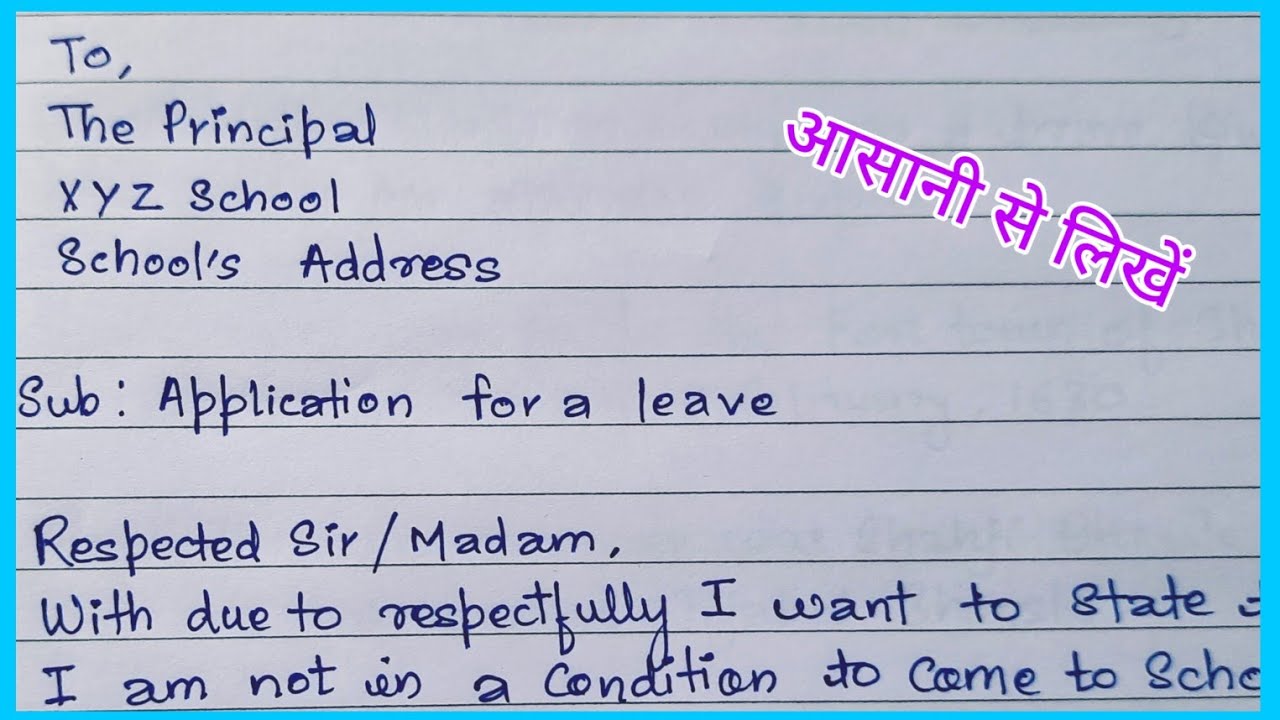 To,
The Principal
XYZ School
School's Address
आसानी से लिखें
Sub: Application for a leave
Respected Sir/Madam,
With due to respectfully I want to state
I am not in a condition to come to Scho